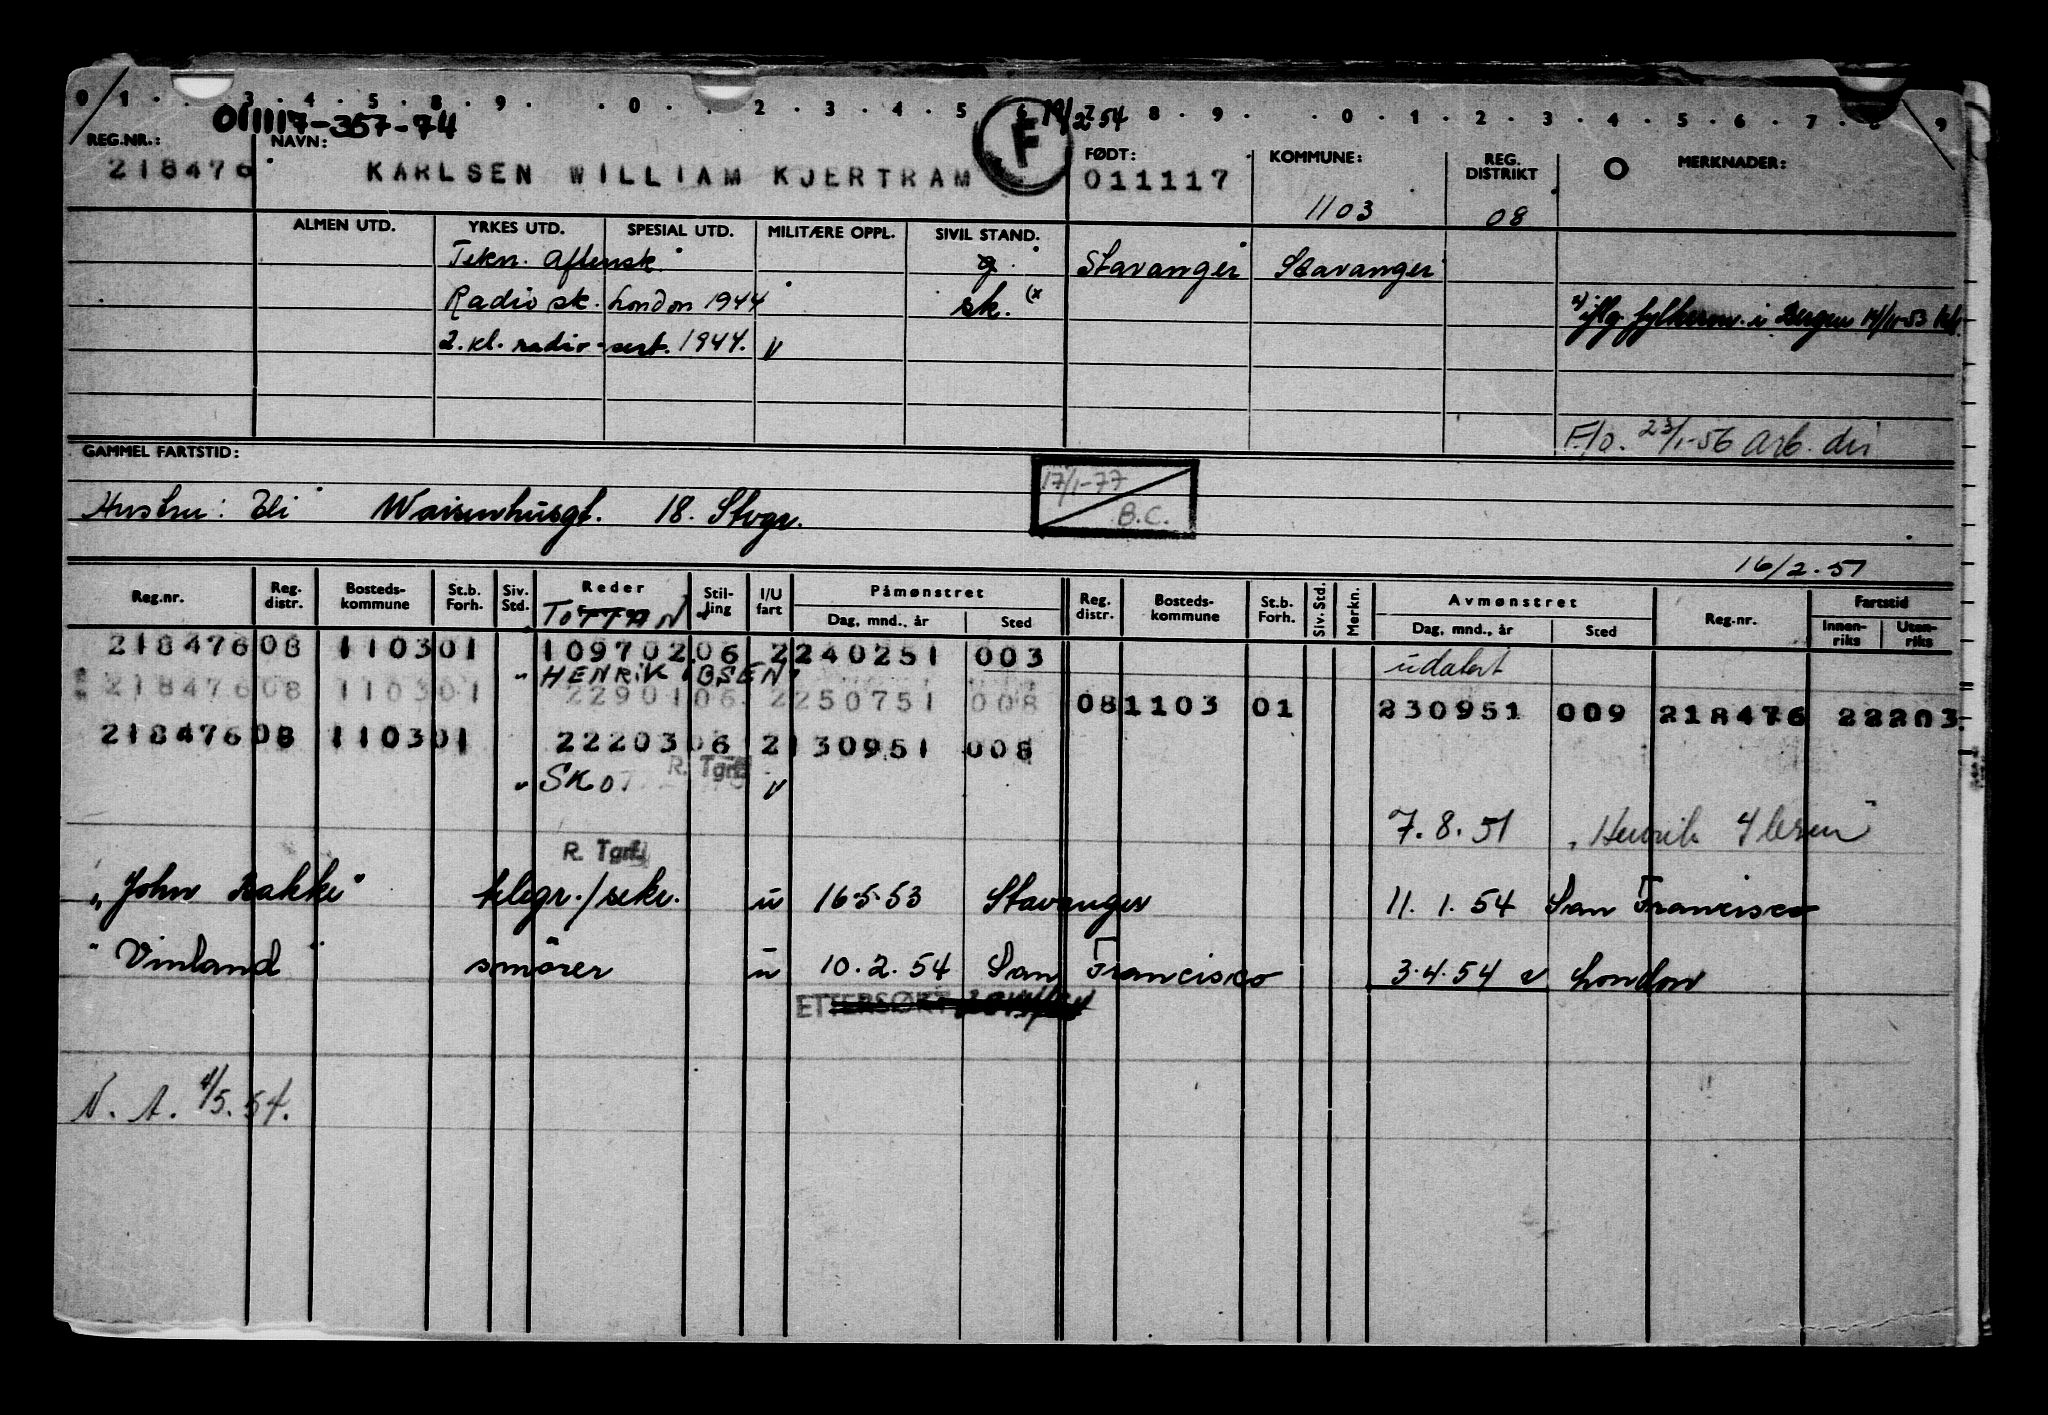 0 1 . . 3 . 4 . 5 . 8 . 9 . . 0 . . 2 . 3 . 4 . 5 6 8 . 9 . . 0 . 1 . 2 . 3 . 4 . 5 . 6 . 7 . 8 9
011117-357-74 F 19/2 54
REG.NR.: NAVN: FØDT: KOMMUNE: REG. DISTRIKT MERKNADER:
218476 KARLSEN WILLIAM KJERTRAM 011117 1103 08
ALMEN UTD. YRKES UTD. SPESIAL UTD. MILITÆRE OPPL. SIVIL STAND.
Tekn. aftensk. g Stavanger Stavanger
Radio sk. London 1944 sk. (x
x) iflg. fylkesm. i Bergen 14/11-53
2. kl. radio-sert. 1944. v
F/o. 23/1-56 Arb. dir
GAMMEL FARTSTID:
17/1-77 B.C.
Hustru: Eli Waisenhusgt. 18. Stvgr.
16/2-51
Reg.nr. Reg. distr. Bosteds-kommune St.b. Forh. Siv. Std. Reder Stil-ling I/U fart Påmønstret Reg. distr. Bosteds-kommune St.b. Forh. Siv. Std. Merkn. Avmønstret Reg.nr. Fartstid
Dag, mnd., år Sted Dag, mnd., år Sted Innen-riks Uten-riks
TOTTAN
218476 08 1103 01 109702 06 2 240251 003 udatert
" HENRIK IBSEN"
218476 08 1103 01 22901 06 2 250751 008 08 1103 01 230951 009 218476 22203
218476 08 1103 01 22203 06 2 130951 008
R. Tgrf.
" SKO v
7.8.51 "Henrik Ibsen"
R. Tgrf.
"John Bakke" telegr./sekr. u 16.5.53 Stavanger 11.1.54 San Francisco
"Vinland" smører u 10.2.54 San Francisco 3.4.54 v London
ETTERSØKT
N. A. 4/5.54.